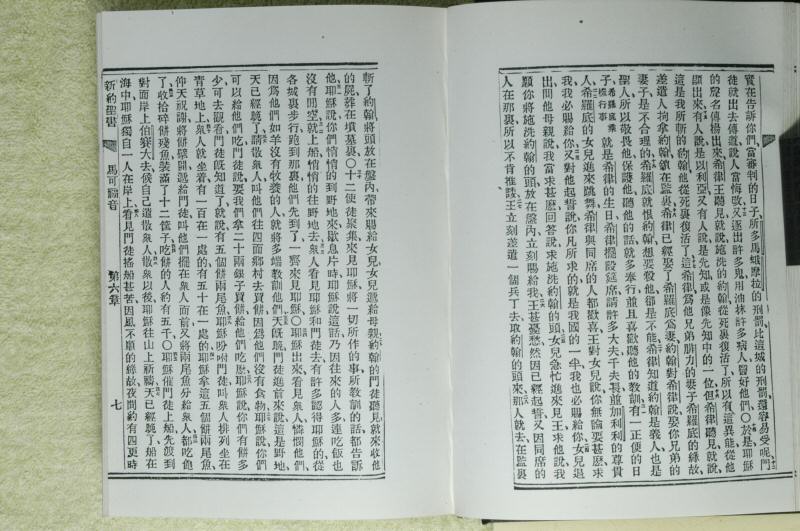 實在告訴你們當審判的日子所多馬蛾摩拉的刑罰比這城的刑罰還容易受呢門
徒就出去傳道說人當悔改又逐出許多鬼用油抹許多病人醫好他們〇於是耶穌
的聲名傳揚出來希律王聽見就說施洗的約翰從死裏復活了所以有這異能從他
顯出來有人說是以利亞又有人說是先知或是像先知中的一位但希律聽見就說
這是我所斬的約翰他從死裏復活了這希律爲他兄弟腓力的妻子希羅底的緣故
差遣人拘拿約翰鎖在監裏希律已經娶了希羅底爲妻約翰對希律說娶你兄弟的
妻子是不合理的希羅底就恨約翰想要殺他卻是不能希律知道約翰是義人也是
聖人所以敬畏他保護他聽他的話就多奉行並且喜歡聽他的教訓有一正便的日
子希羅底乘機行事就是希律的生日希律擺設筵席請許多大夫千夫長並加利利的尊貴
人希羅底的女兒進來跳舞希律與同席的人都歡喜王對女兒說你無論要甚麽求
我我必賜給你又對他起誓說你凡所求的就是我國的一半我也必賜給你女兒退
出問他母親說我當求甚麽回答說求施洗約翰的頭女兒急忙進來見王求他說我
願你將施洗約翰的頭放在盤內立刻賜給我王甚憂愁然因已經起誓又因同席的
人在那裏所以不肯推辭王立刻差遣一個兵丁去取約翰的頭來那人就去在監裏
斬了約翰將頭放在盤內帶來賜給女兒女兒遞給母親約翰的門徒聽見就來收他
的屍葬在墳墓裏〇十二使徒聚集來見耶穌將一切所作的事所教訓的話都告訴
他耶穌說你們悄悄的到野地來歇息片時耶穌說這話乃因往來的人多連吃飯也
沒有閒空就上船悄悄的往野地去衆人看見耶穌和門徒去有許多認得耶穌的從
各城裏步行跑到那裏他們先到了一齊來見耶穌〇耶穌出來看見衆人憐憫他們
因爲他們如羊沒有牧養的人就將多端教訓他們天旣晚門徒進前來說這是野地
天已經晚了請散衆人叫他們往四面鄉村去買餅因爲他們沒有食物耶穌說你們
可以給他們吃門徒說要我們拿二十兩銀子買餅給他們吃麽耶穌說你們有餅多
少可去觀看門徒旣知道了就說有五個餅兩尾魚耶穌吩咐門徒叫衆人排列坐在
青草地上衆人就坐着有一百在一處的有五十在一處的耶穌拿這五個餅兩尾魚
仰天祝謝將餅擘開遞給門徒叫他們擺在衆人面前又將兩尾魚分給衆人都吃飽
了收拾碎餅殘魚裝滿了十二筐子吃餅的人約有五千〇耶穌催門徒上船先渡到
對面岸上伯賽大去候自己遣散衆人散衆人以後耶穌往山上祈禱天已經晚了船在
海中耶穌獨自一人在岸上看見門徒搖船甚苦因風不順的緣故夜間約有四更時
新約聖書 馬可福音 第六章 七